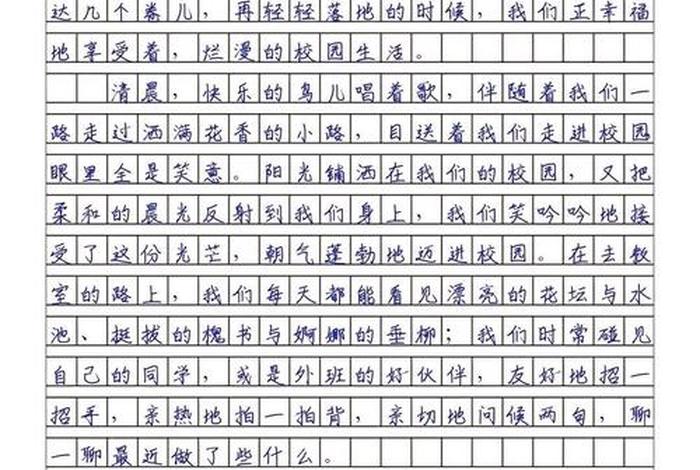 达几个卷儿，再轻轻落地的时候，我们正幸福
地享受着，烂漫的校园生活。
清晨，快乐的鸟儿唱着歌，伴随着我们一
路走过洒满花香的小路，目送着我们走进校园
眼里全是笑意。阳光铺洒在我们的校园，又把
柔和的晨光反射到我们身上，我们笑吟吟地接
受了这份光芒，朝气蓬勃地迈进校园。在去教
室的路上，我们每天都能看见漂亮的花坛与水
池、挺拔的槐书与婀娜的垂柳；我们时常碰见
自己的同学，或是外班的好伙伴，友好地招一
招手，亲热地拍一拍背，亲切地问候两句，聊
一聊最近做了些什么。